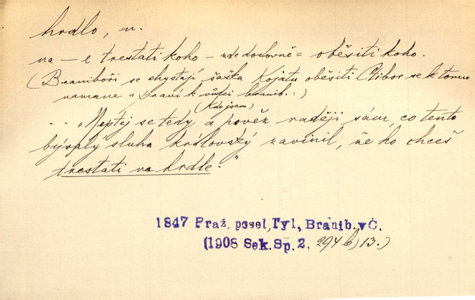 hrdlo, n.
na – e trestati koho – zde doslovně = oběsiti koho.
(Braniboři se chystají šaška Kojatu oběsiti. Ctibor se k tomu
namane a praví k vůdci branib.:)
(Kdo jsem)
.. „Neptej se tedy, a pověz raději sám, co tento
bývalý sluha královský zavinil, že ho chceš
trestati na hrdle."
1847 Praž. posel, Tyl, Branib. v Č.
(1908 Seb. Sp. 2. 294 b) 13.)